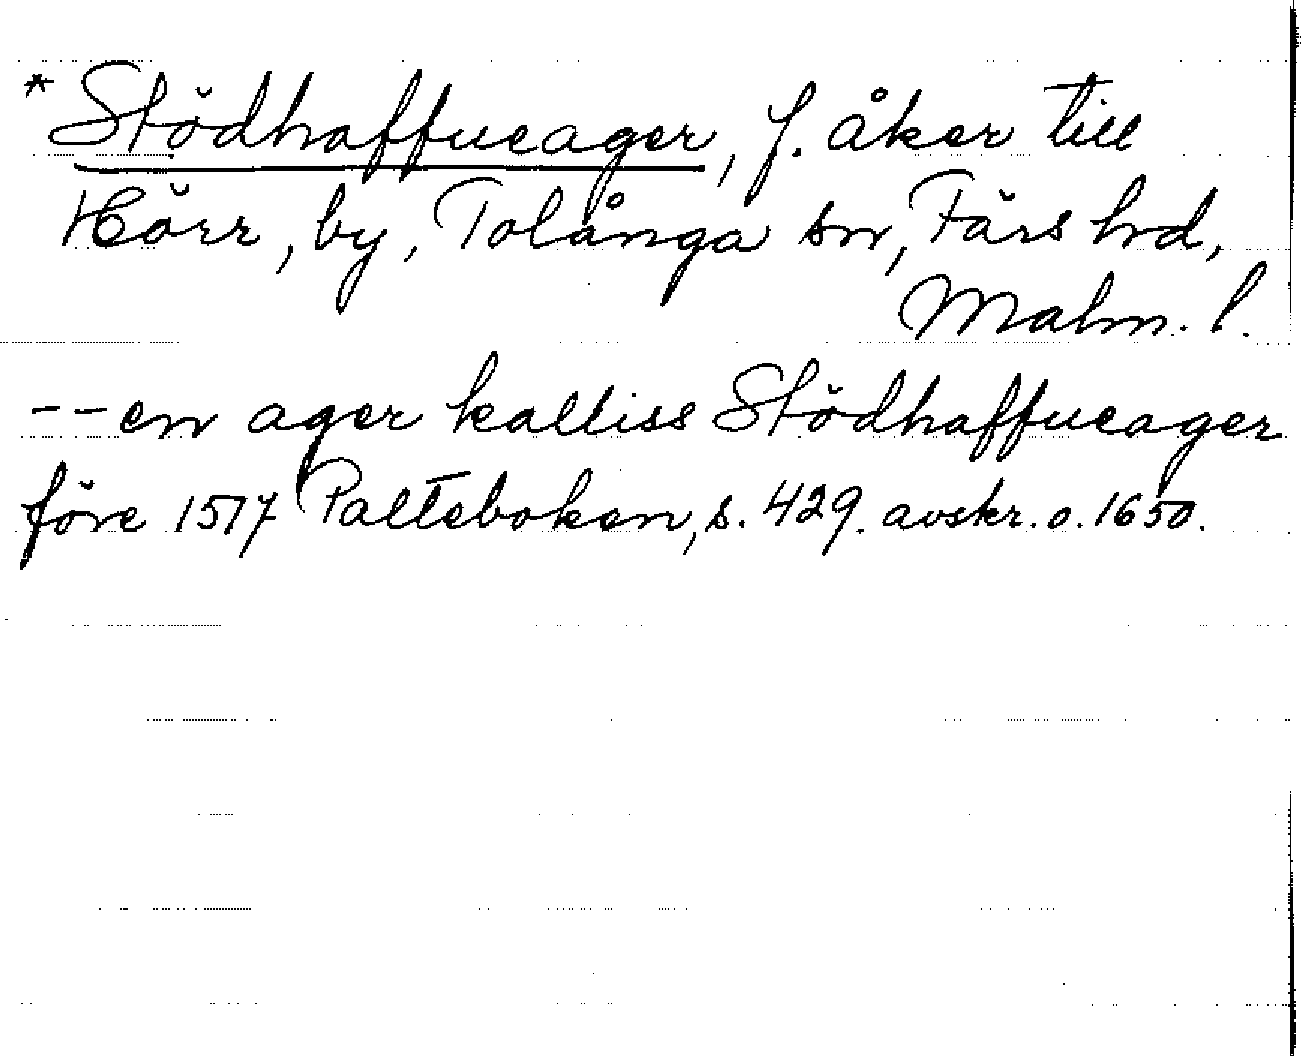 * Stödhaffueager, f. åker till
Hörr, by, Tolånga sn, Färs hrd,
Malm. l.
-- en ager kalliss Stödhaffueager
före 1517 Palteboken, s. 429. avskr. o. 1650.